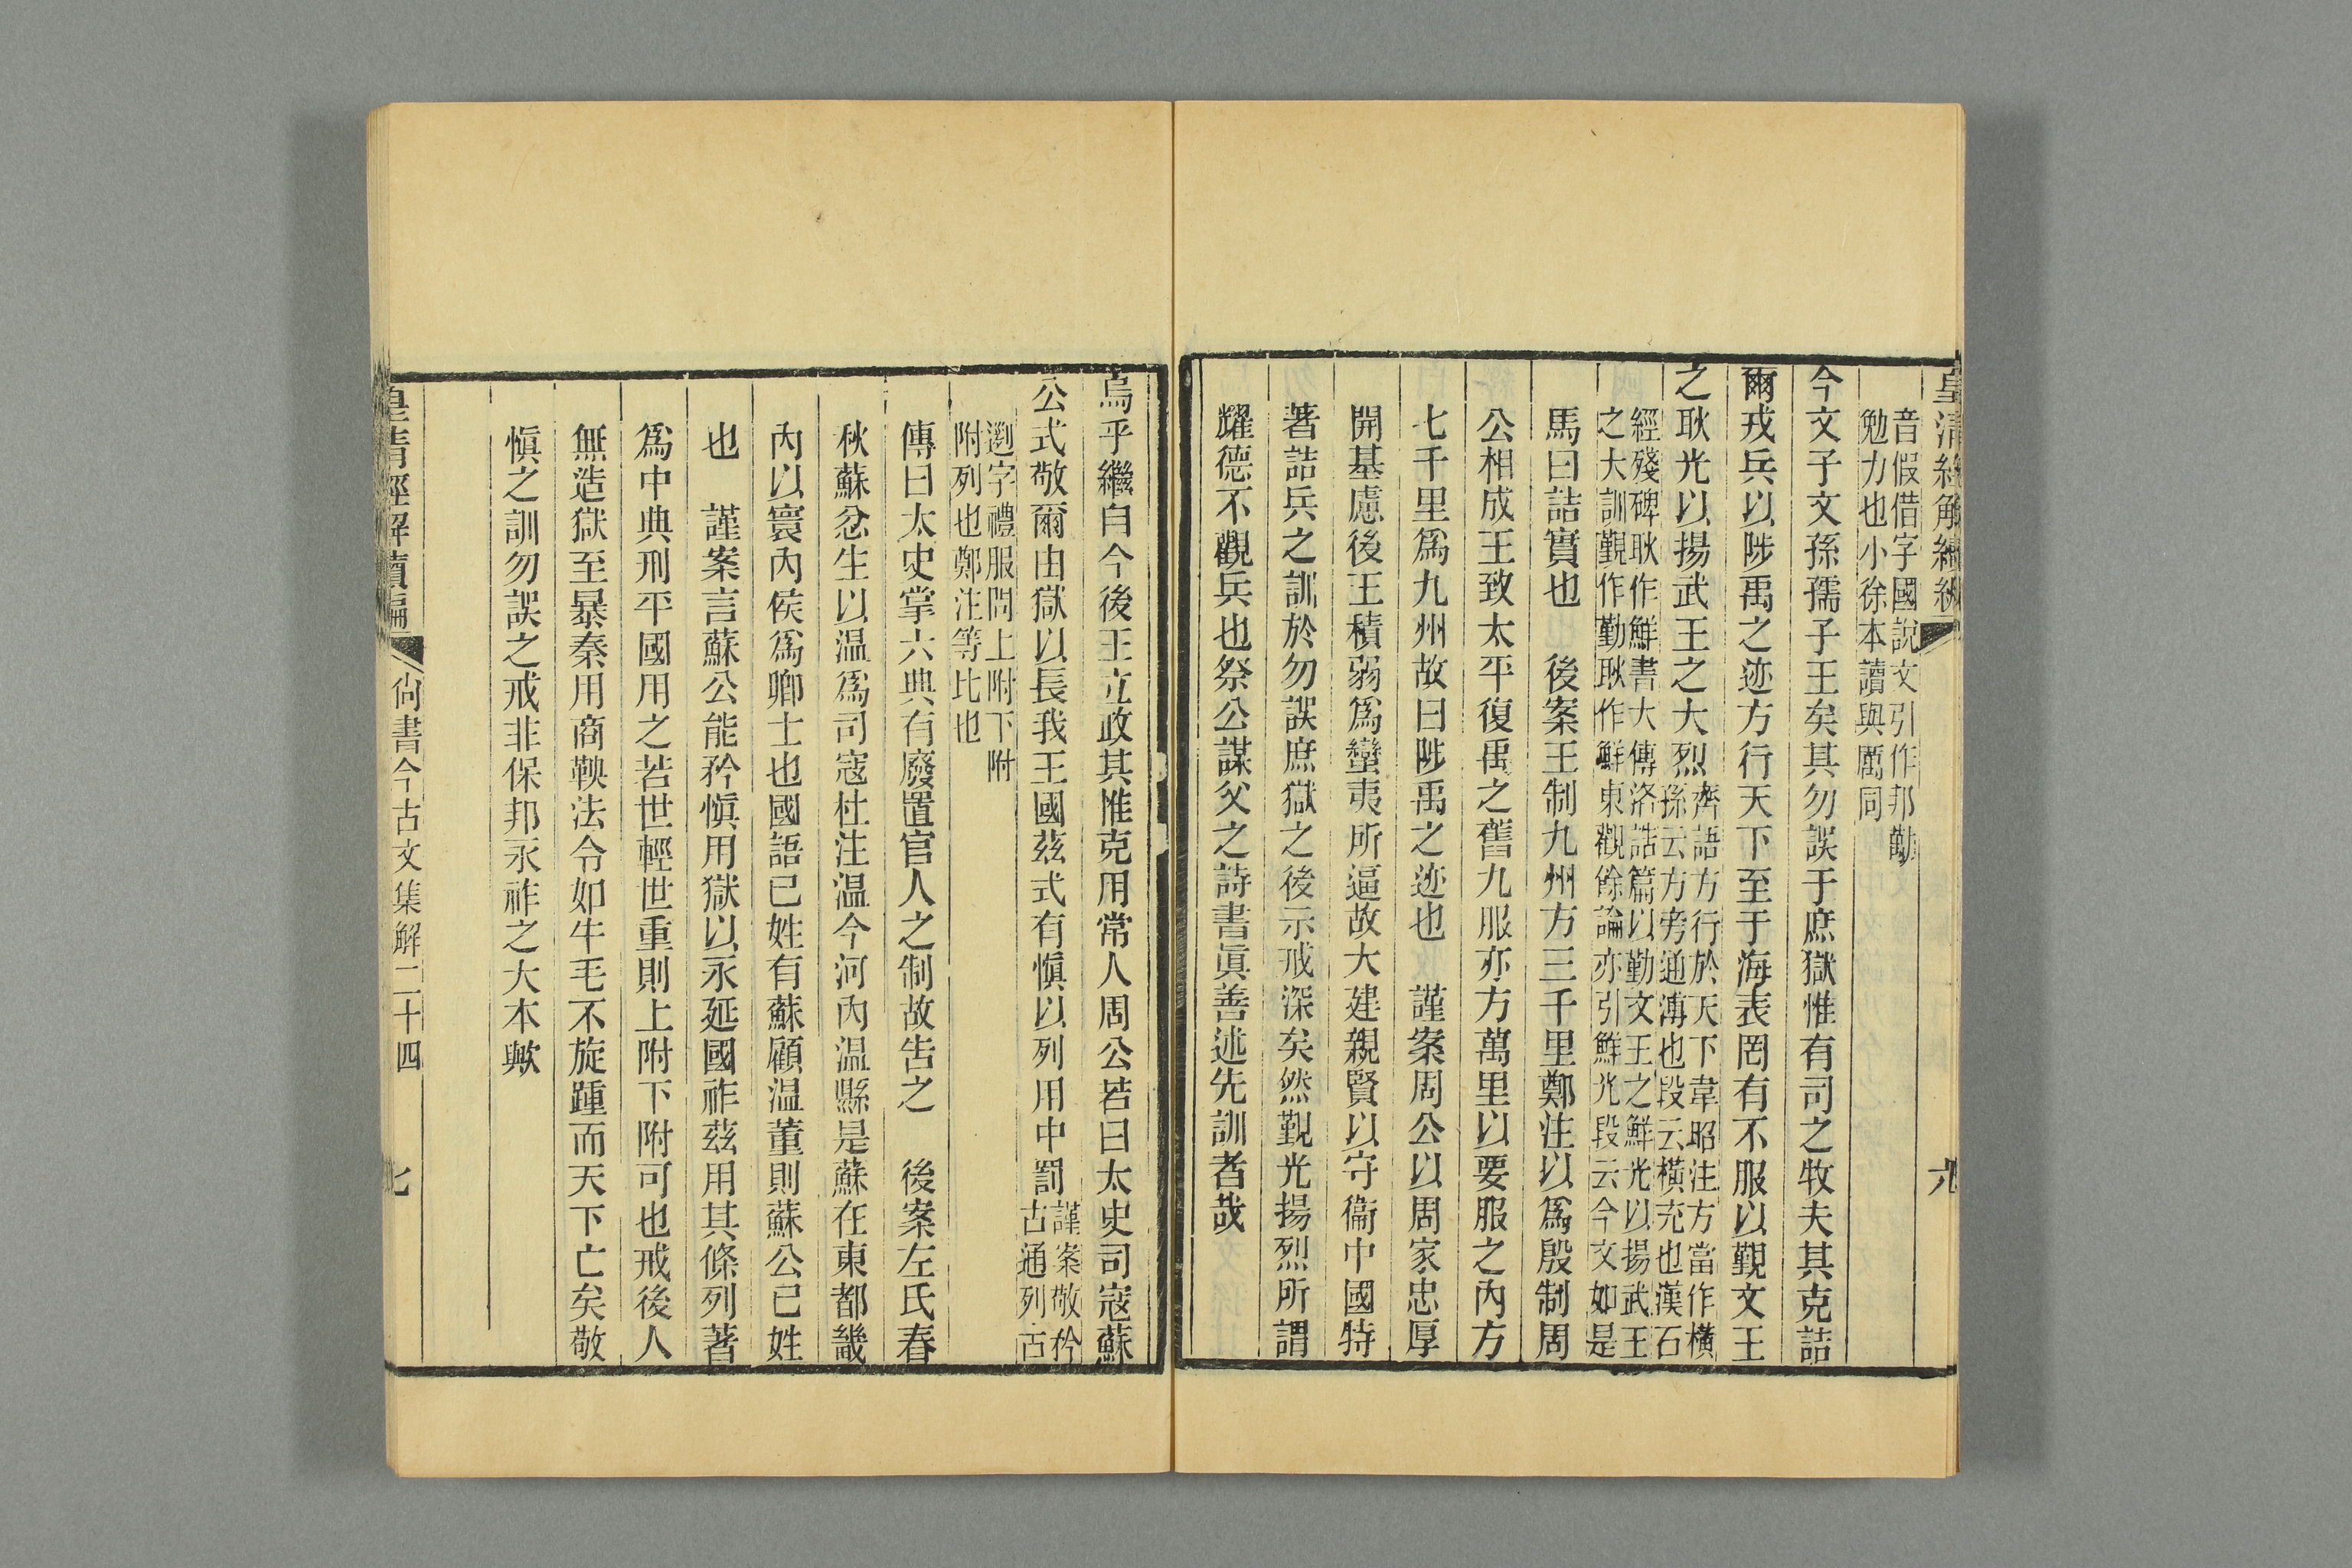 皇清經解續編
六
音假借字國說文引作邦勱
勉力也小徐本讀與厲同
今文子文孫孺子王矣其勿誤于庶獄惟有司之牧夫其克詰
爾戎兵以陟禹之迹方行天下至于海表罔有不服以覲文王
之耿光以揚武王之大烈
齊語方行於天下韋昭注方當作橫
孫云方旁通溥也段云橫充也漢石
經殘碑耿作鮮書大傳洛誥篇以勤文王之鮮光以揚武王
之大訓覲作勤耿作鮮東觀餘論亦引鮮光段云今文如是
馬曰詰實也　後案王制九州方三千里鄭注以爲殷制周
公相成王致太平復禹之舊九服亦方萬里以要服之內方
七千里爲九州故曰陟禹之迹也　謹案周公以周家忠厚
開基慮後王積弱爲蠻夷所逼故大建親賢以守衞中國特
著詰兵之訓於勿誤庶獄之後示戒深矣然覲光揚烈所謂
耀德不觀兵也祭公謀父之詩書眞善述先訓者哉
烏乎繼自今後王立政其惟克用常人周公若曰太史司寇蘇
公式敬爾由獄以長我王國茲式有慎以列用中罰
謹案敬矜
古通列古
迾字禮服問上附下附
附列也鄭注等比也
傳曰太史掌六典有廢置官人之制故告之　後案左氏春
秋蘇忿生以温爲司寇杜注温今河內温縣是蘇在東都畿
內以寰內侯爲卿士也國語已姓有蘇顧温董則蘇公已姓
也　謹案言蘇公能矜愼用獄以永延國祚茲用其條列著
爲中典刑平國用之若世輕世重則上附下附可也戒後人
無造獄至暴秦用商鞅法令如牛毛不旋踵而天下亡矣敬
愼之訓勿誤之戒非保邦永祚之大本歟
皇清經解續編
尙書今古文集解二十四
七